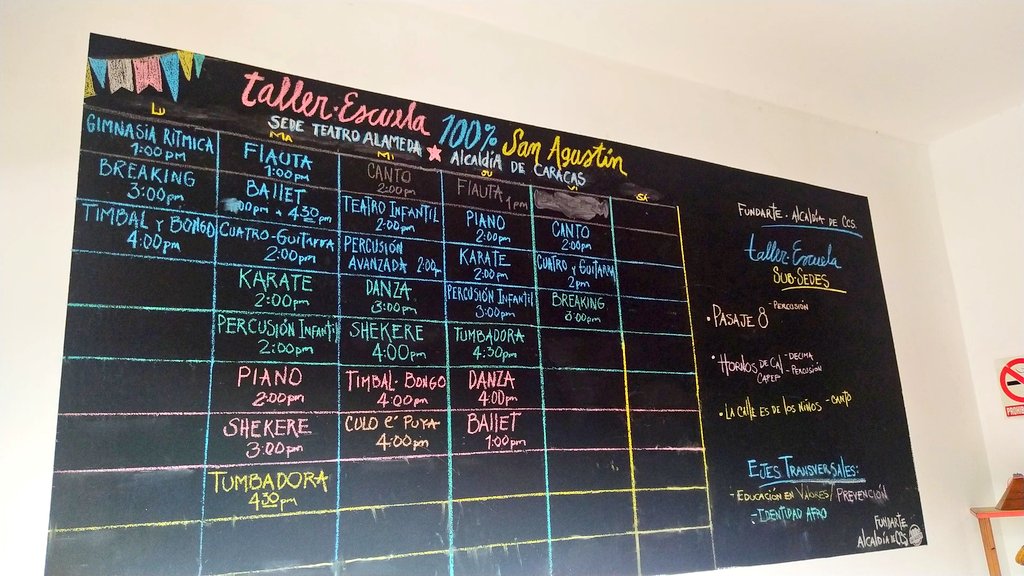 taller·Escuela 100% San Agustín
SEDE TEATRO ALAMEDA ★ Alcaldía DE CARACAS
LU
GIMNASIA RÍTMICA
1:00pm
BREAKING
3:00pm
TIMBAL Y BONGO
4:00pm
MA
FlAUTA
1:00pm
BAllET
:00pm + 4:30pm
CUATRO-GUITARRA
2:00pm
KARATE
2:00pm
PERCUSIÓN INFANTIL
2:00pm
PIANO
2:00pm
SHEKERE
3:00pm
TUMBADORA
4:30pm
MI
CANTO
2:00pm
TEATRO INFANTIL
2:00pm
PERCUSIÓN
AVANZADA 2:00p
DANZA
3:00pm
SHEKERE
4:00pm
TIMBAL-BONGO
4:00pm
CULO E' PUYA
4:00pm
JU
FlAUTA 1pm
PIANO
2:00pm
KARATE
2:00pm
PERCUSIÓN INFANTIL
3:00pm
TUMBADORA
4:30pm
DANZA
4:00pm
BAllET
1:00pm
VI
CANTO
2:00pm
CUATRO Y GUITARRA
2pm
BREAKING
3:00pm
SA
FUNDARTE-AlCAlDÍA DE CCS.
taller-Escuela
SUB-SEDES
•PASAJE 8 -PERCUSIÓN
•HORNOS DE CAl -DECIMA
-PERCUSIÓN
•LA CAllE ES DE lOS NIÑOS-CANTO
EJES TRANSVERSALES:
-EDUCACIÓN EN VAlORES/PREVENCIÓN
-IDENTIDAD AFRO
FUNDARTE
AlCAlDÍA DE CCS
PROHIB